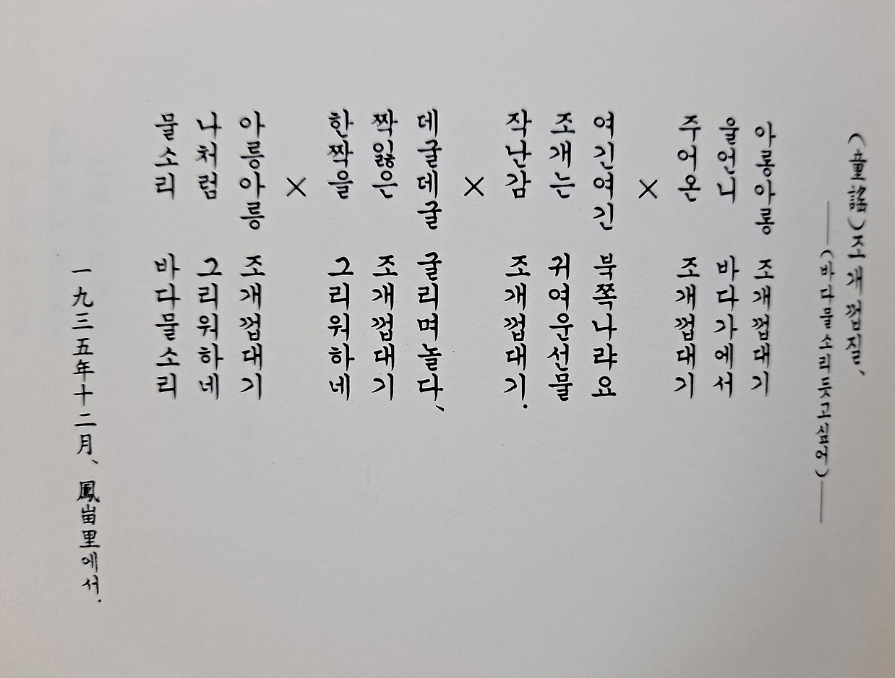 (童謠)조개껍질、
——(바다물소리듯고싶어)——
아롱아롱 조개껍대기
울언니 바다가에서
주어온 조개껍대기
×
여긴여긴 북쪽나라요
조개는 귀여운선물
작난감 조개껍대기.
×
데굴데굴 굴리며놀다、
짝잃은 조개껍대기
한짝을 그리워하네
×
아릉아릉 조개껍대기
나처럼 그리워하네
물소리 바다물소리
一九三五年十二月、鳳峀里에서.